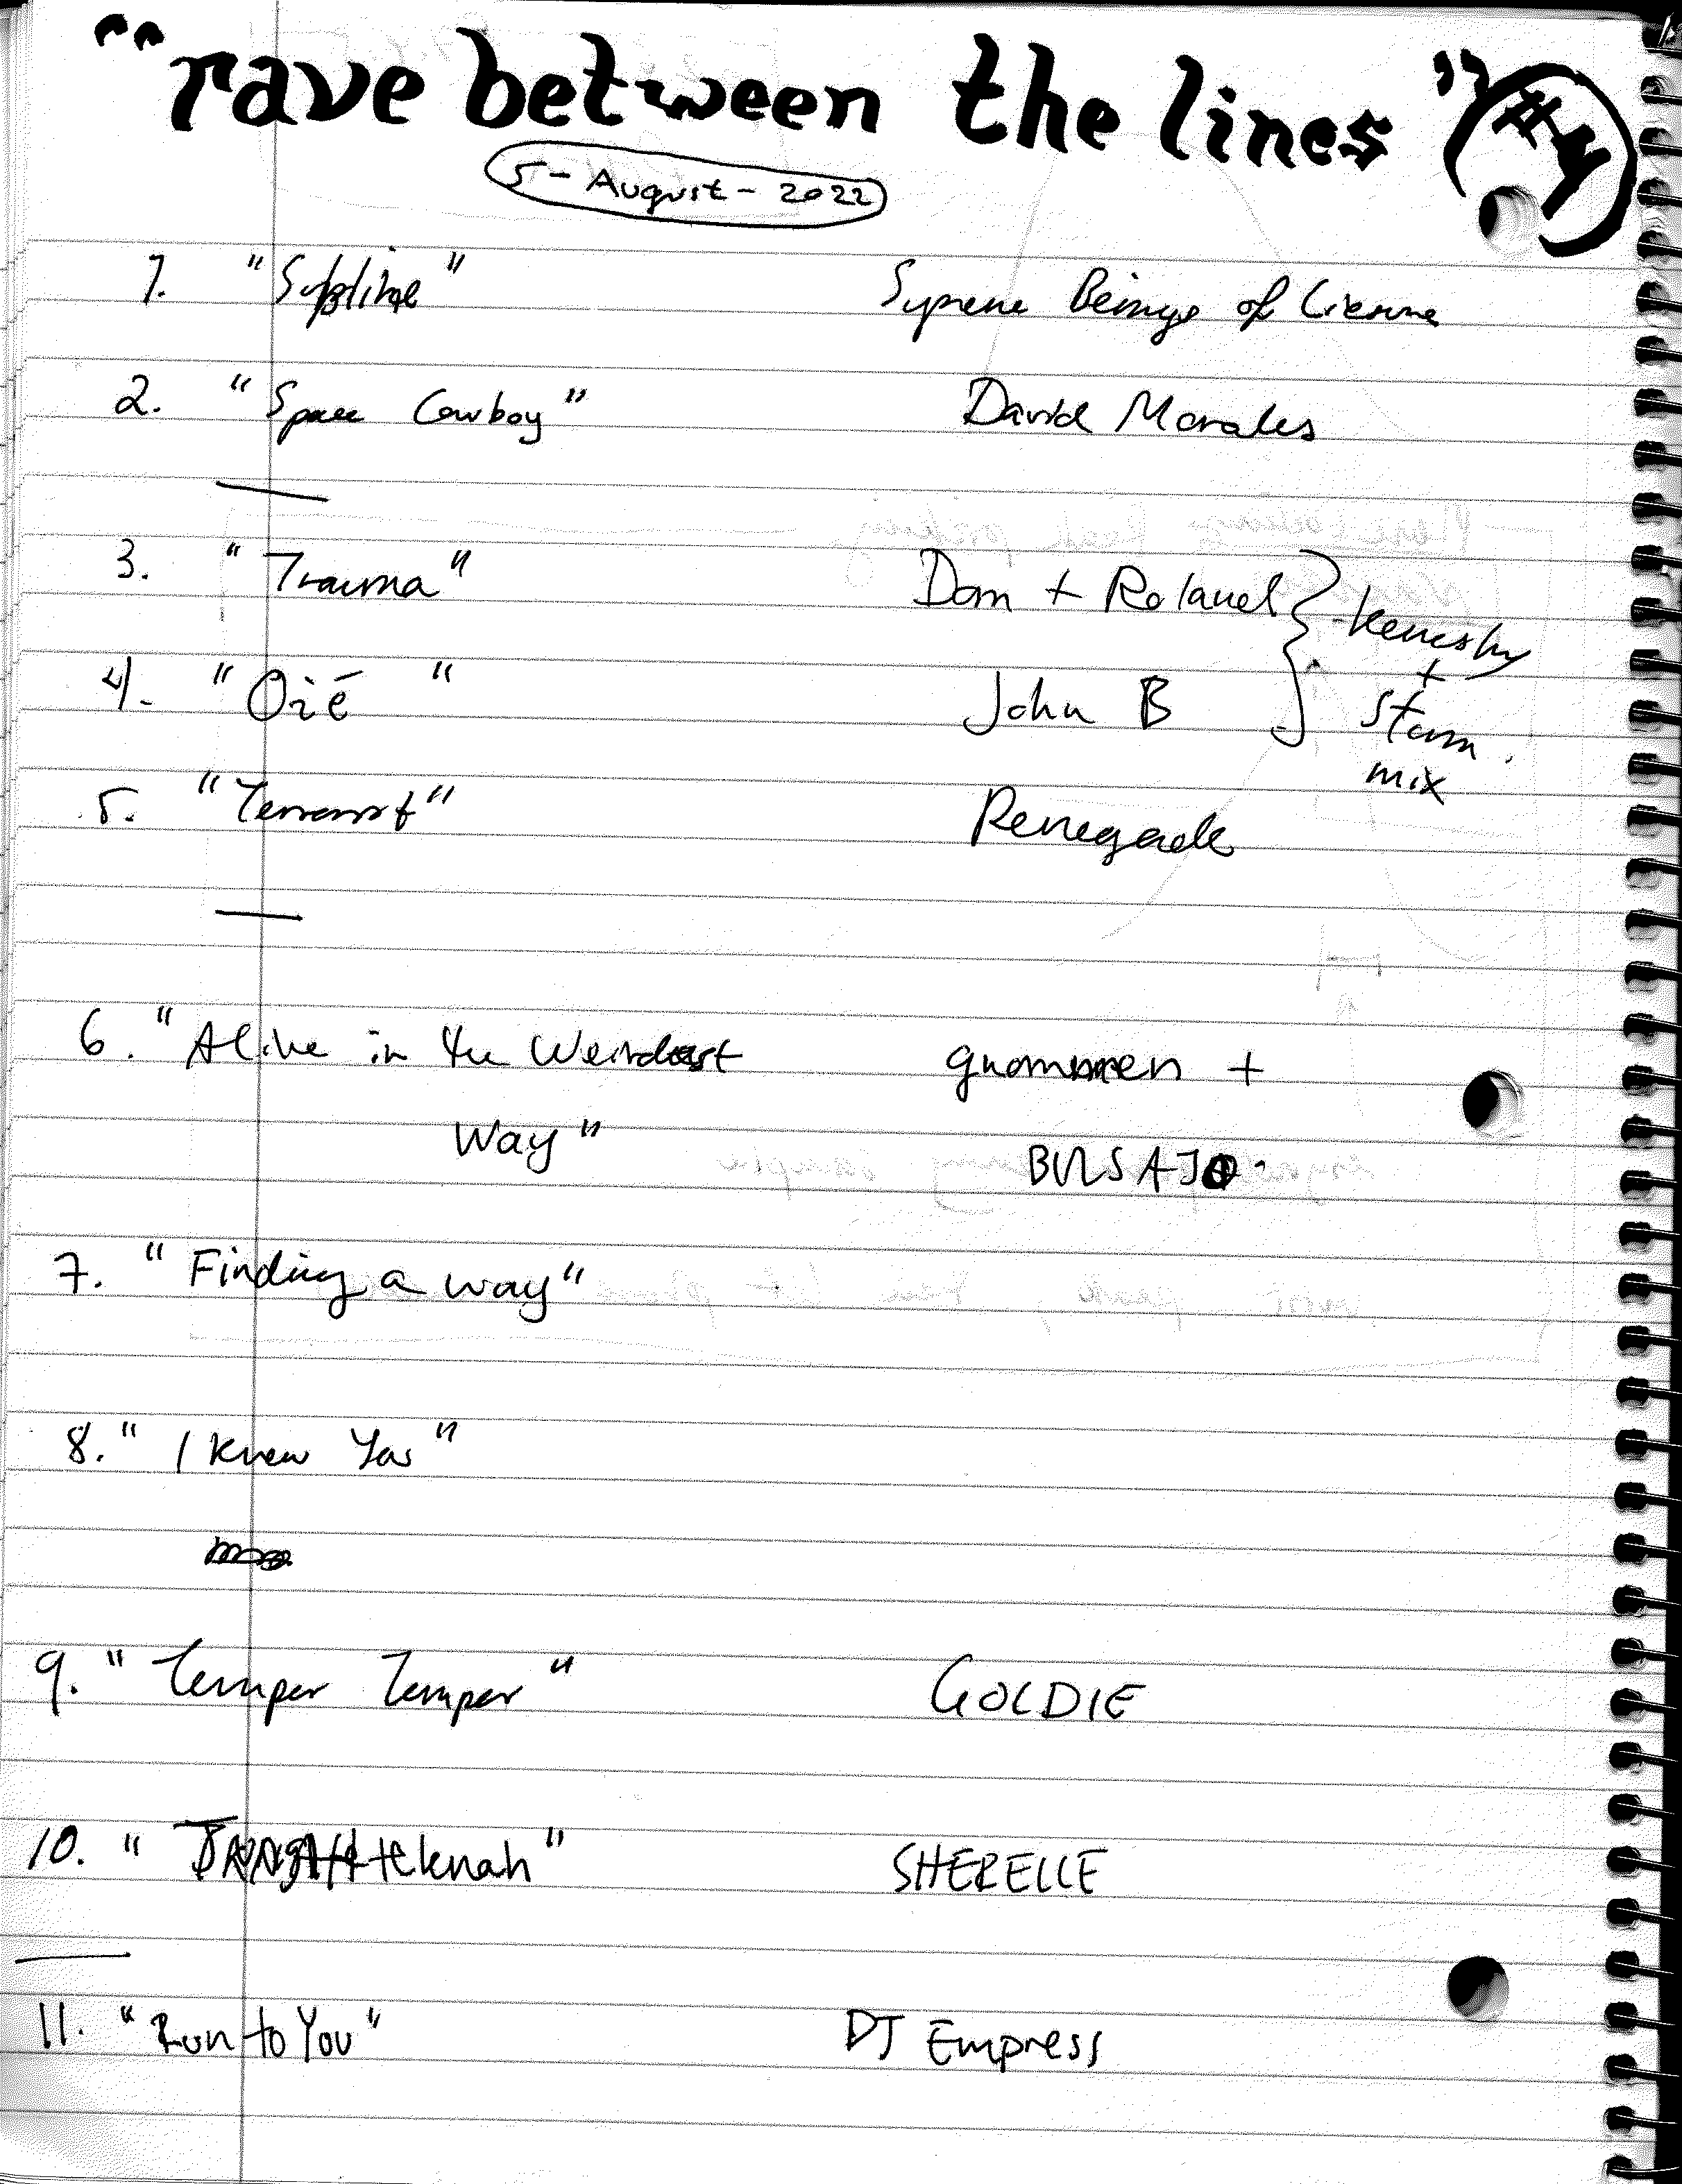 "rave between the lines" #4
5 - August - 2022
1. "Sublime" Supreme Beings of Liesure
2. "Space Cowboy" David Morales
3. "Trauma" Dom + Roland
4. " " John B } + Storm mix
5. "Terrorist" Renegade
6. "Alive in the Weirdest gnommen +
Way" BULSAJO.
7. "Finding a way"
8. "I Knew You"
9. "Temper Temper" GOLDIE
10. " " SHERELLE
11. "Run to You" DJ Empress